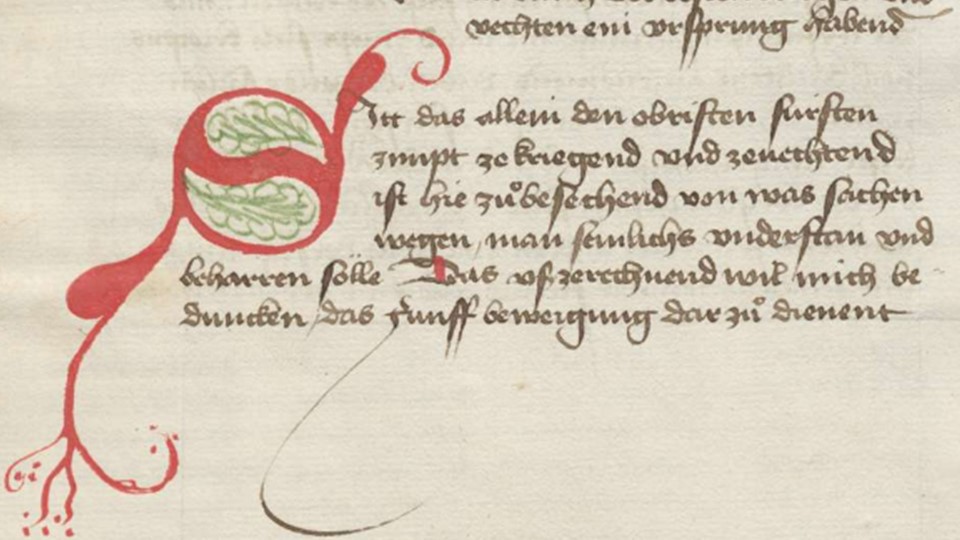 vechten ein vrsprung habend
Sitt das allein den obristen fürsten
zimpt ze kriegend vnd zeuechtend
ist hie zůbesechend von was sachen
wegen, man semlichs vnderstan vnd
beharren sölle Das vszerechnend wil mich be-
duncken, das fünff beweigung dar zů dienent